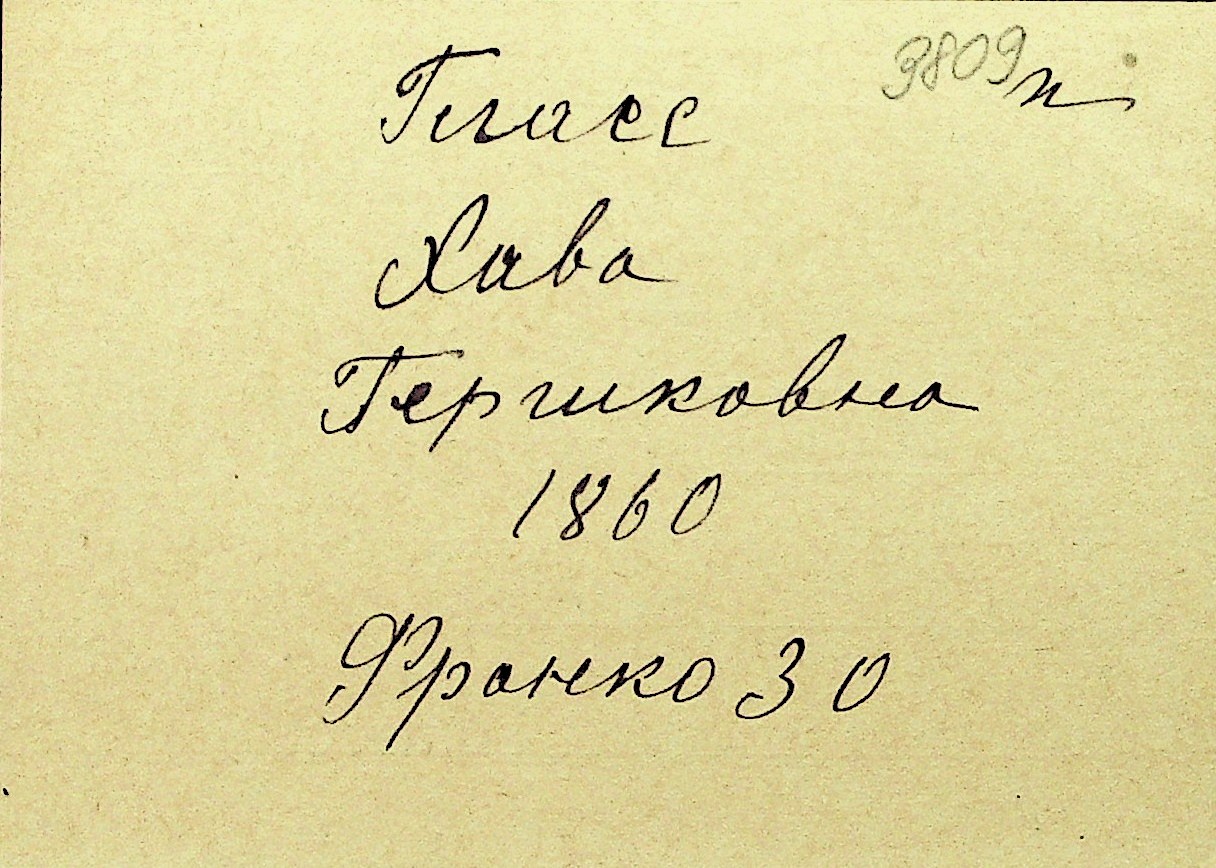 3809 п
Гласс
Хава
Гершковна
1860
Франко 30